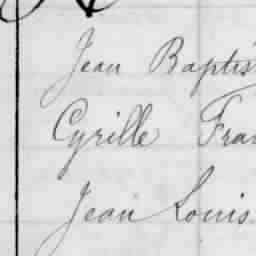 Jean Baptis
Cyrille Fran
Jean Louis